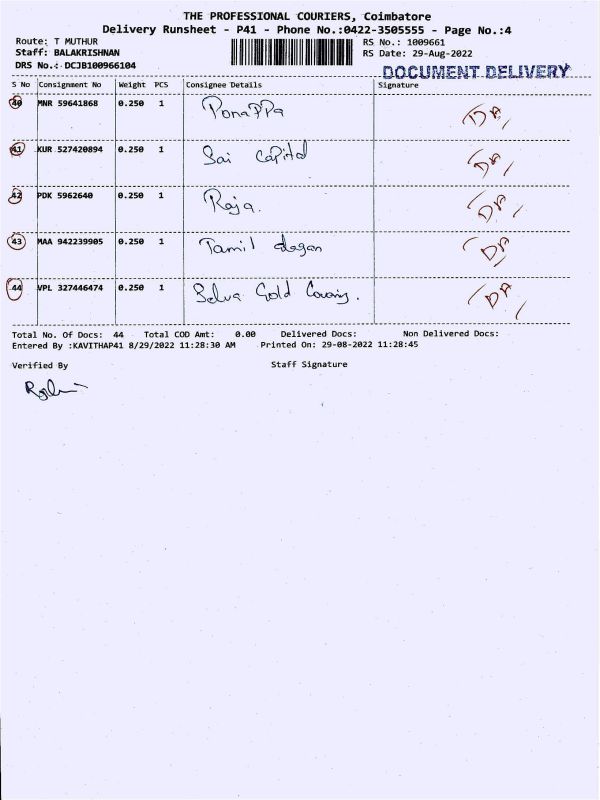 THE PROFESSIONAL COURIERS, Coimbatore
Delivery Runsheet - P41 - Phone No.:0422-3505555 - Page No.:4
Route: T MUTHUR RS No.: 1009661
Staff: BALAKRISHNAN RS Date: 29-Aug-2022
DRS No.: DCJB100966104 DOCUMENT DELIVERY
S No Consignment No Weight PCS Consignee Details Signature
40 MNR 59641868 0.250 1 Ponappa DA
41 KUR 527420894 0.250 1 Sai Capital DA
42 PDK 5962640 0.250 1 Raja. DA
43 MAA 942239905 0.250 1 Tamil alagan DA
44 VPL 327446474 0.250 1 Selva Gold Covering. DA
Total No. Of Docs: 44 Total COD Amt: 0.00 Delivered Docs: Non Delivered Docs:
Entered By :KAVITHAP41 8/29/2022 11:28:30 AM Printed On: 29-08-2022 11:28:45
Verified By Staff Signature